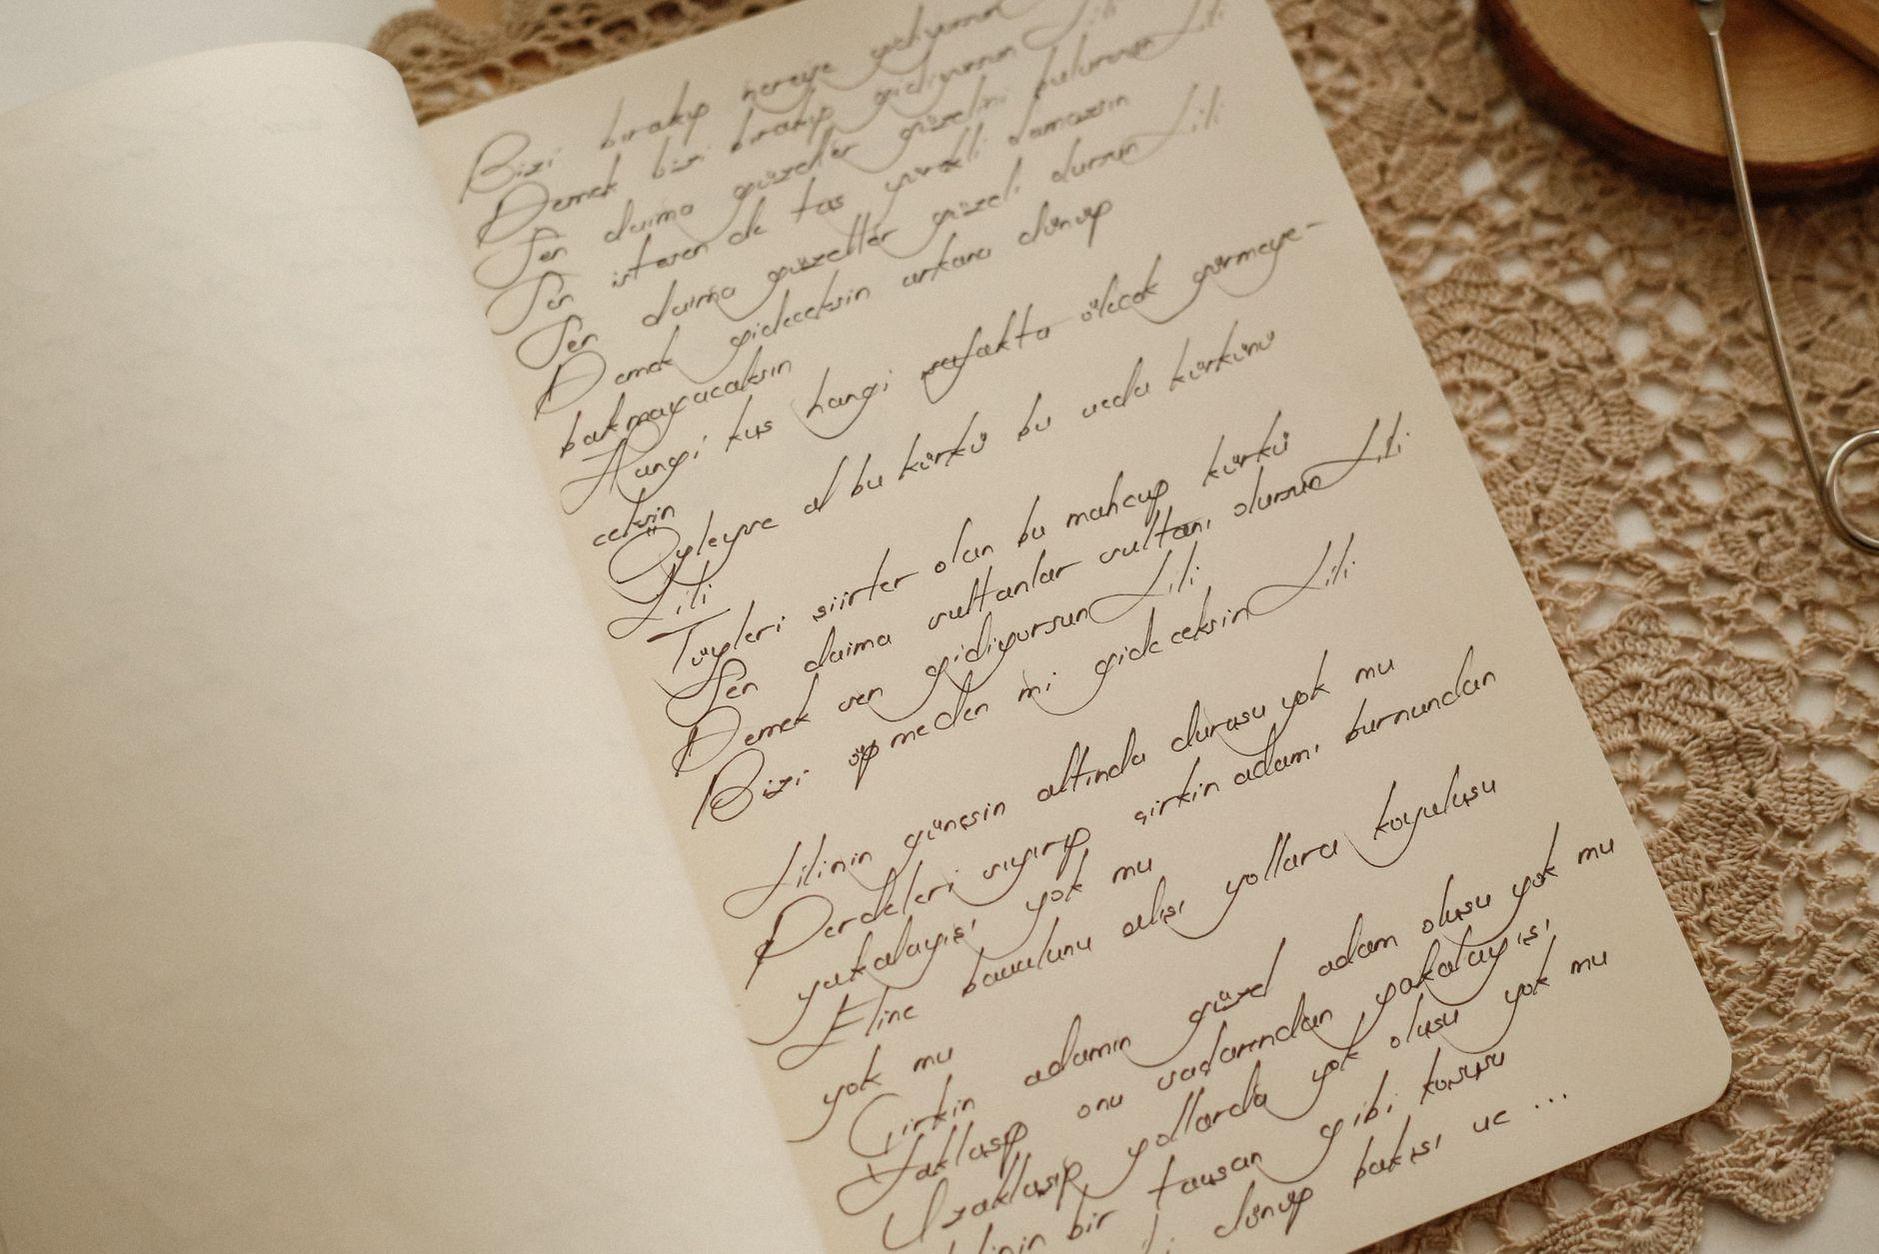 Bizi bırakıp nereye gidiyorsun Lili
Demek bizi bırakıp gidiyorsun Lili
Sen daima güzeller güzelini bulursun Lili
Sen istesen de taş yürekli olamazsın
Sen daima güzeller güzeli dursun Lili
Demek gideceksin arkana dönüp
bakmayacaksın
Hangi kuş hangi şafakta ölecek görmeye-
ceksin
Öyleyse al bu kürkü bu veda kürkünü
Lili
Tüyleri şiirler olan bu mahcup kürkü
Sen daima sultanlar sultanı olursun Lili
Demek sen gidiyorsun Lili
Bizi öpmeden mi gideceksin Lili
Lilinin güneşin altında duruşu yok mu
Perdeleri sıyırıp çirkin adamı burnundan
yakalayışı yok mu
Eline bavulunu alışı yollara koyuluşu
yok mu
Çirkin adamın güzel adam oluşu yok mu
Yaklaşıp onu saçlarından yakalayışı
Uzaklaşıp yollarda yok oluşu yok mu
bir tavşan gibi koşuşu
dönüp bakışı ve ...